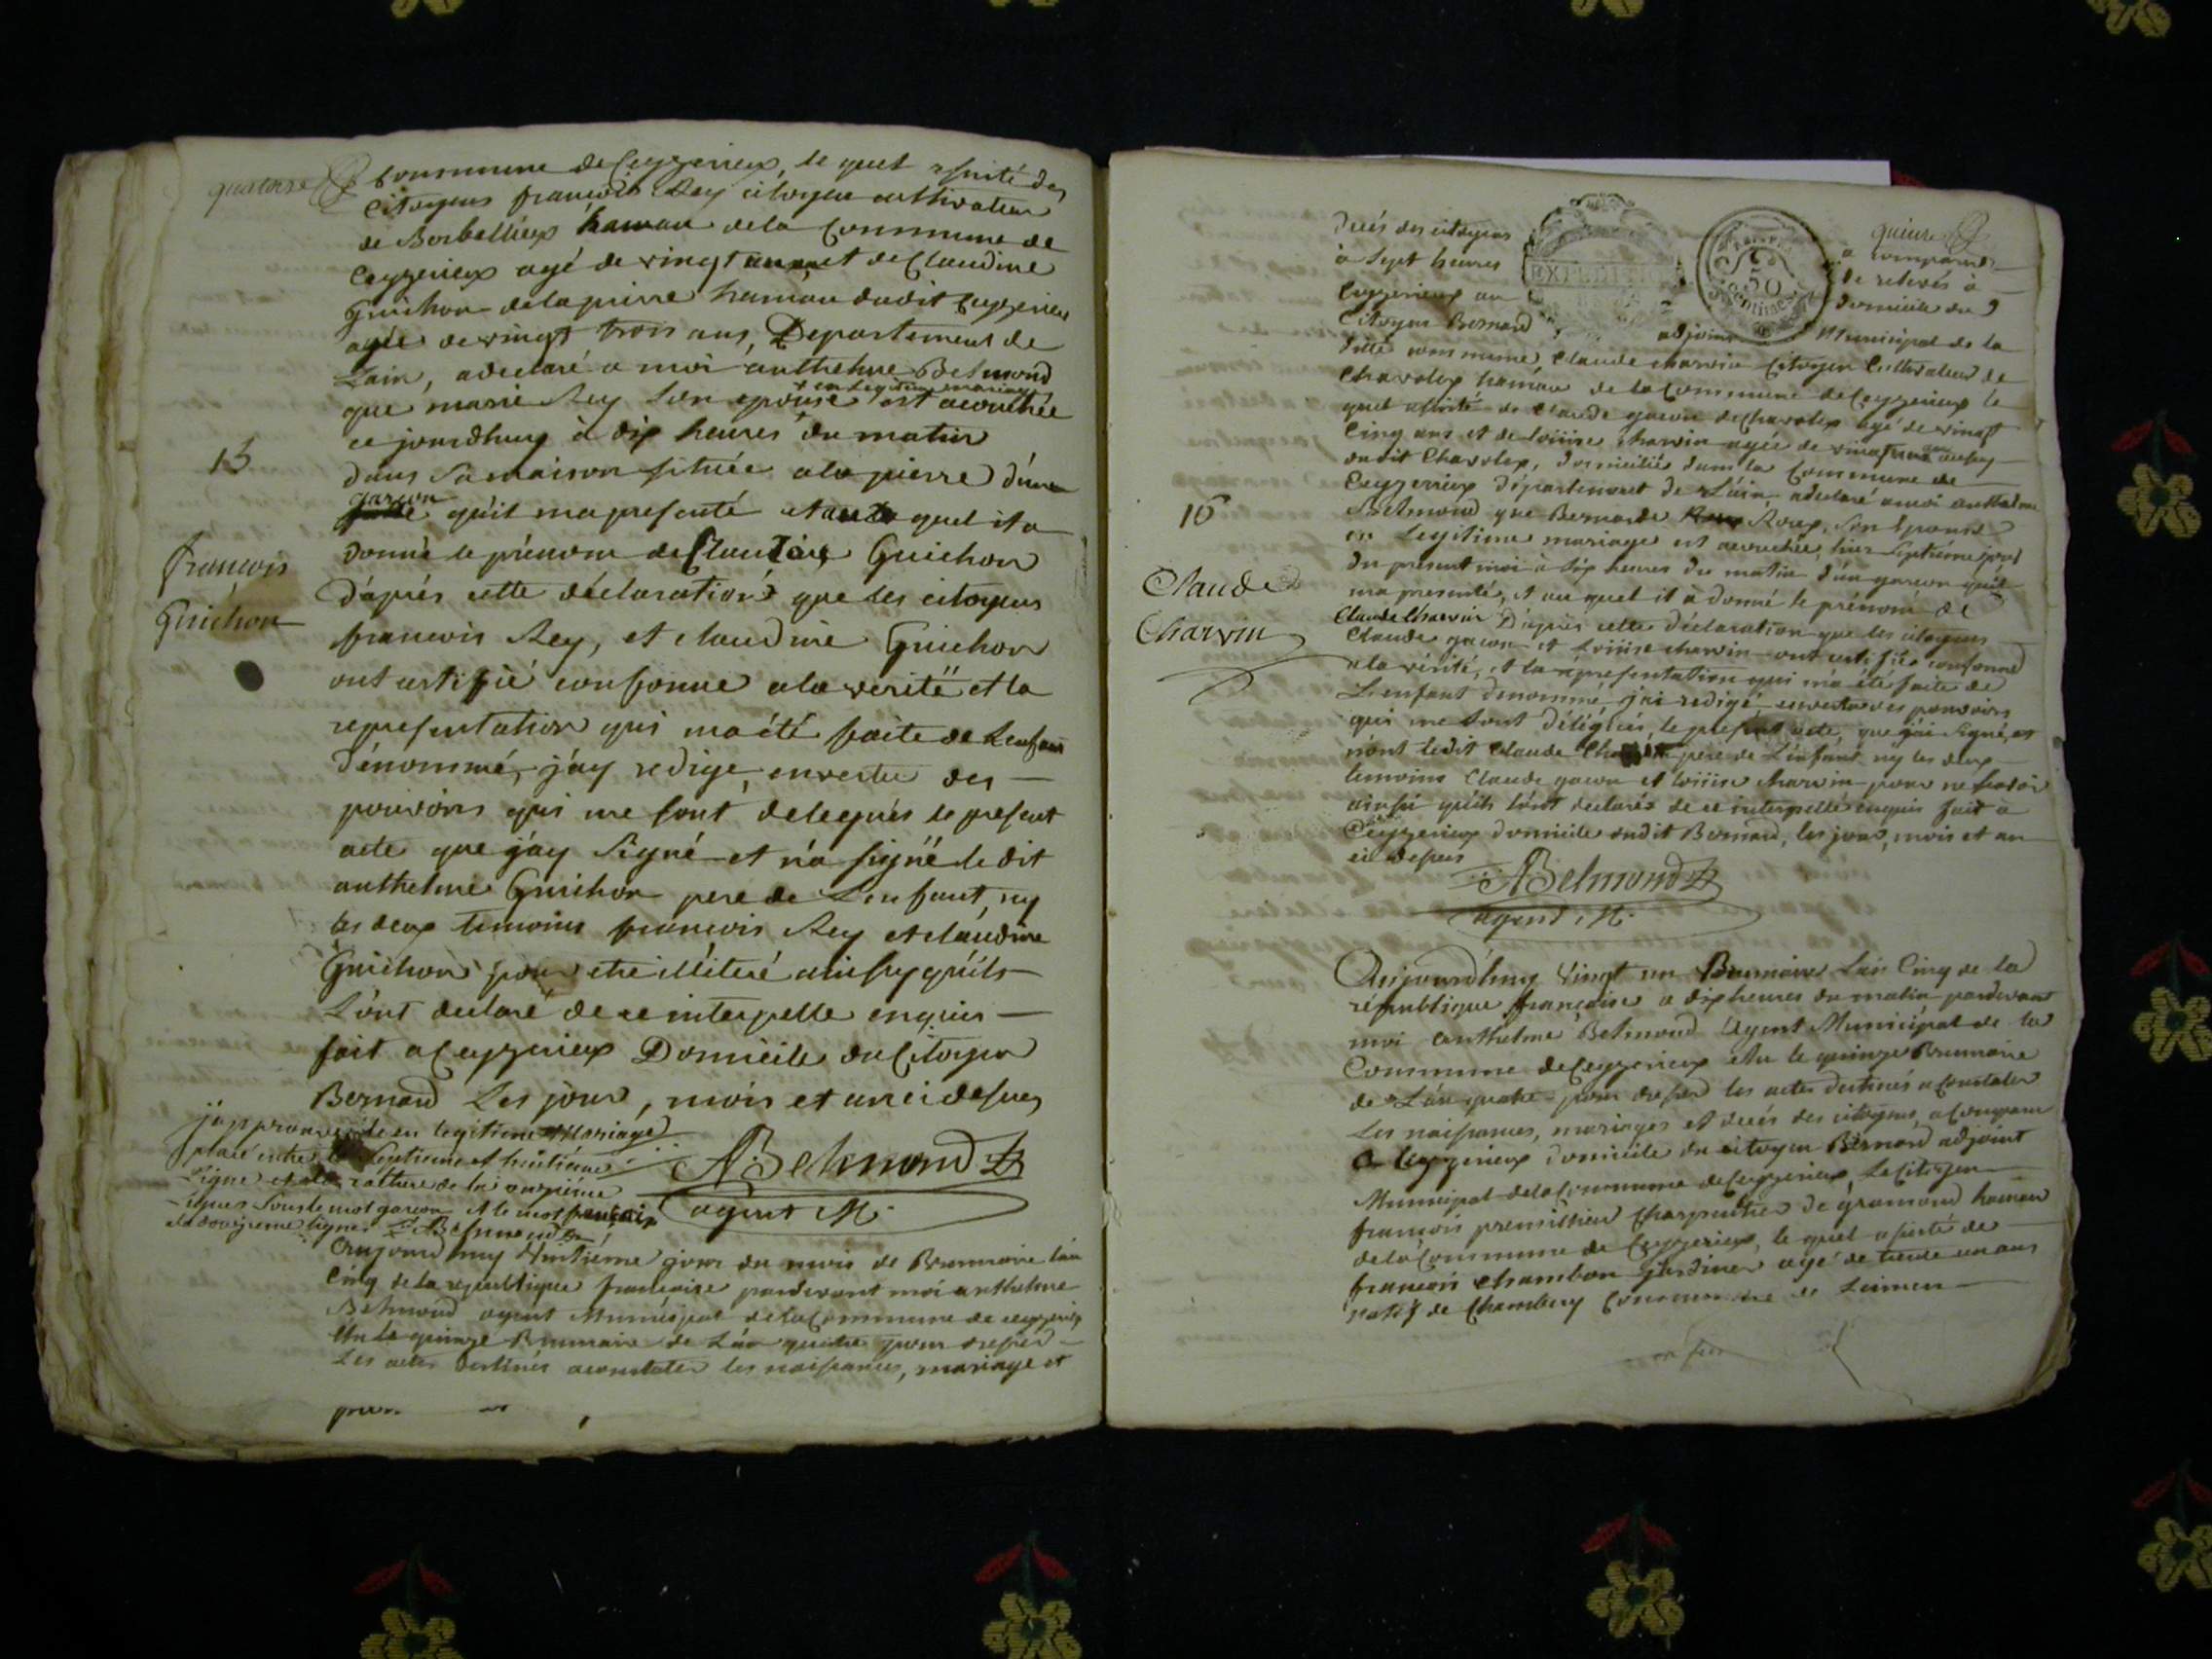 quatorze
Commune de Ceyzerieux, le quel assisté des
Citoyens françois Rey citoyen cultivateur
de Borbellieux hamau dela Commune de
Ceyzerieux agé de vingt et de Claudine
Guichon delapierre hamau dudit Ceyzerieu
agée de vingt trois ans, Departement de
Lain, adeclaré a moi anthelme Belmond
+ en Legitime mariage
que marie Rey son epouse + est acouchée
ce jourdhuy à dix heures du matin
15
dans sa maison située ala pierre d'une
garçon
quil ma presenté et au quel il a
donné le prénom de Guichon
françois
Guichon
d'après cette déclaration que les citoyens
francois Rey, et claudine Guichon
ont certifié conforme ala verité et la
representation qui ma été faite de Lenfant
dénommé, j'ay redige, envertu des —
pouvoirs qui me sont delegués le present
acte que j'ay signé et n'a signé le dit
anthelme Guichon pere de Lenfant, ny
les deux temoins francois Rey et claudine
Guichon pour etre illiteré ainsy quils —
L'ont declaré de ce interpelle enquis —
fait a Ceyzerieux Domicile du Citoyen
Bernard Les jour, mois et an ci desus
j'approuve en legitime Mariage
placé entre la septieme et huitieme
Ligne et la rature de la onzième
Ligne sous le mot garcon et le mot françois
a la douzieme ligne. Belmond
ABelmond
agent M.
Aujourdhuy huitième jour du mois de Brumaire l'an
Cinq de la republique francaise pardevant moi anthelme
Belmond agent Municipal dela Commune de ceyzerieu
élu le quinze Brumaire de L'an quatre pour dresser —
Les actes destinés aconstater les naissances, mariage et
quinze
décès des citoyens
a comparu
à sept heures
de relevés a
Ceyzerieux au
domicile du
Citoyen Bernard
adjoint
Municipal de la
EXPEDITION
50
centimes
ditte commune Claude charvin Citoyen Cultivateur de
Charolex hamau de la Commune de Ceyzerieux le
quel assisté de Claude gacon de Charolex agé de vingt
Cinq ans et de loüise charvin agée de aussy
dudit Charolex, domiciliés dans la Commune de
Ceyzerieux département de L'ain adeclaré amoi anthelme
16
Belmond que Bernarde Roux, son Epouse
en Legitime mariage est acouchée hier septieme jour
du present moi à six heures du matin d'un garçon quil
Claude
Charvin
ma presenté, et au quel il a donné le prénom de
Claude Charvin D'après cette déclaration que les citoyens
Claude gacon et loüise charvin ont certifiés conforme
ala vérité, et la representation qui m'a été faite de
L'enfant dénommé, j'ai redigé envertu des pouvoirs
qui me sont délégués, le present acte, que j'ai signé, et
n'ont ledit Claude pere de L'enfant ny les deux
temoins Claude gacon et loüise charvin pour ne savoir
ainsi quils l'ont declarés de ce interpellé enquis fait a
Ceyzerieux domicile dudit Bernard, les jour, mois et an
ci desus
ABelmond
agent M.
Aujourdhuy vingt un Brumaire L'an Cinq de la
république française a dix heures du matin pardevant
moi anthelme Belmond Agent Municipal de la
Commune de Ceyzerieux élu le quinze Brumaire
de L'an quatre pour dresser les actes destinés a constater
Les naissances, mariages et décès des citoyens, a Comparu
a Ceyzerieux domicile du citoyen Bernard adjoint
Municipal dela Commune de Ceyzerieux Le Citoyen
francois premillieu charpentier de gramond hamau
dela Commune de Ceyzerieux, le quel assisté de
francois Chambon jardinier agé de trente un ans
natif de Chambery Commune de